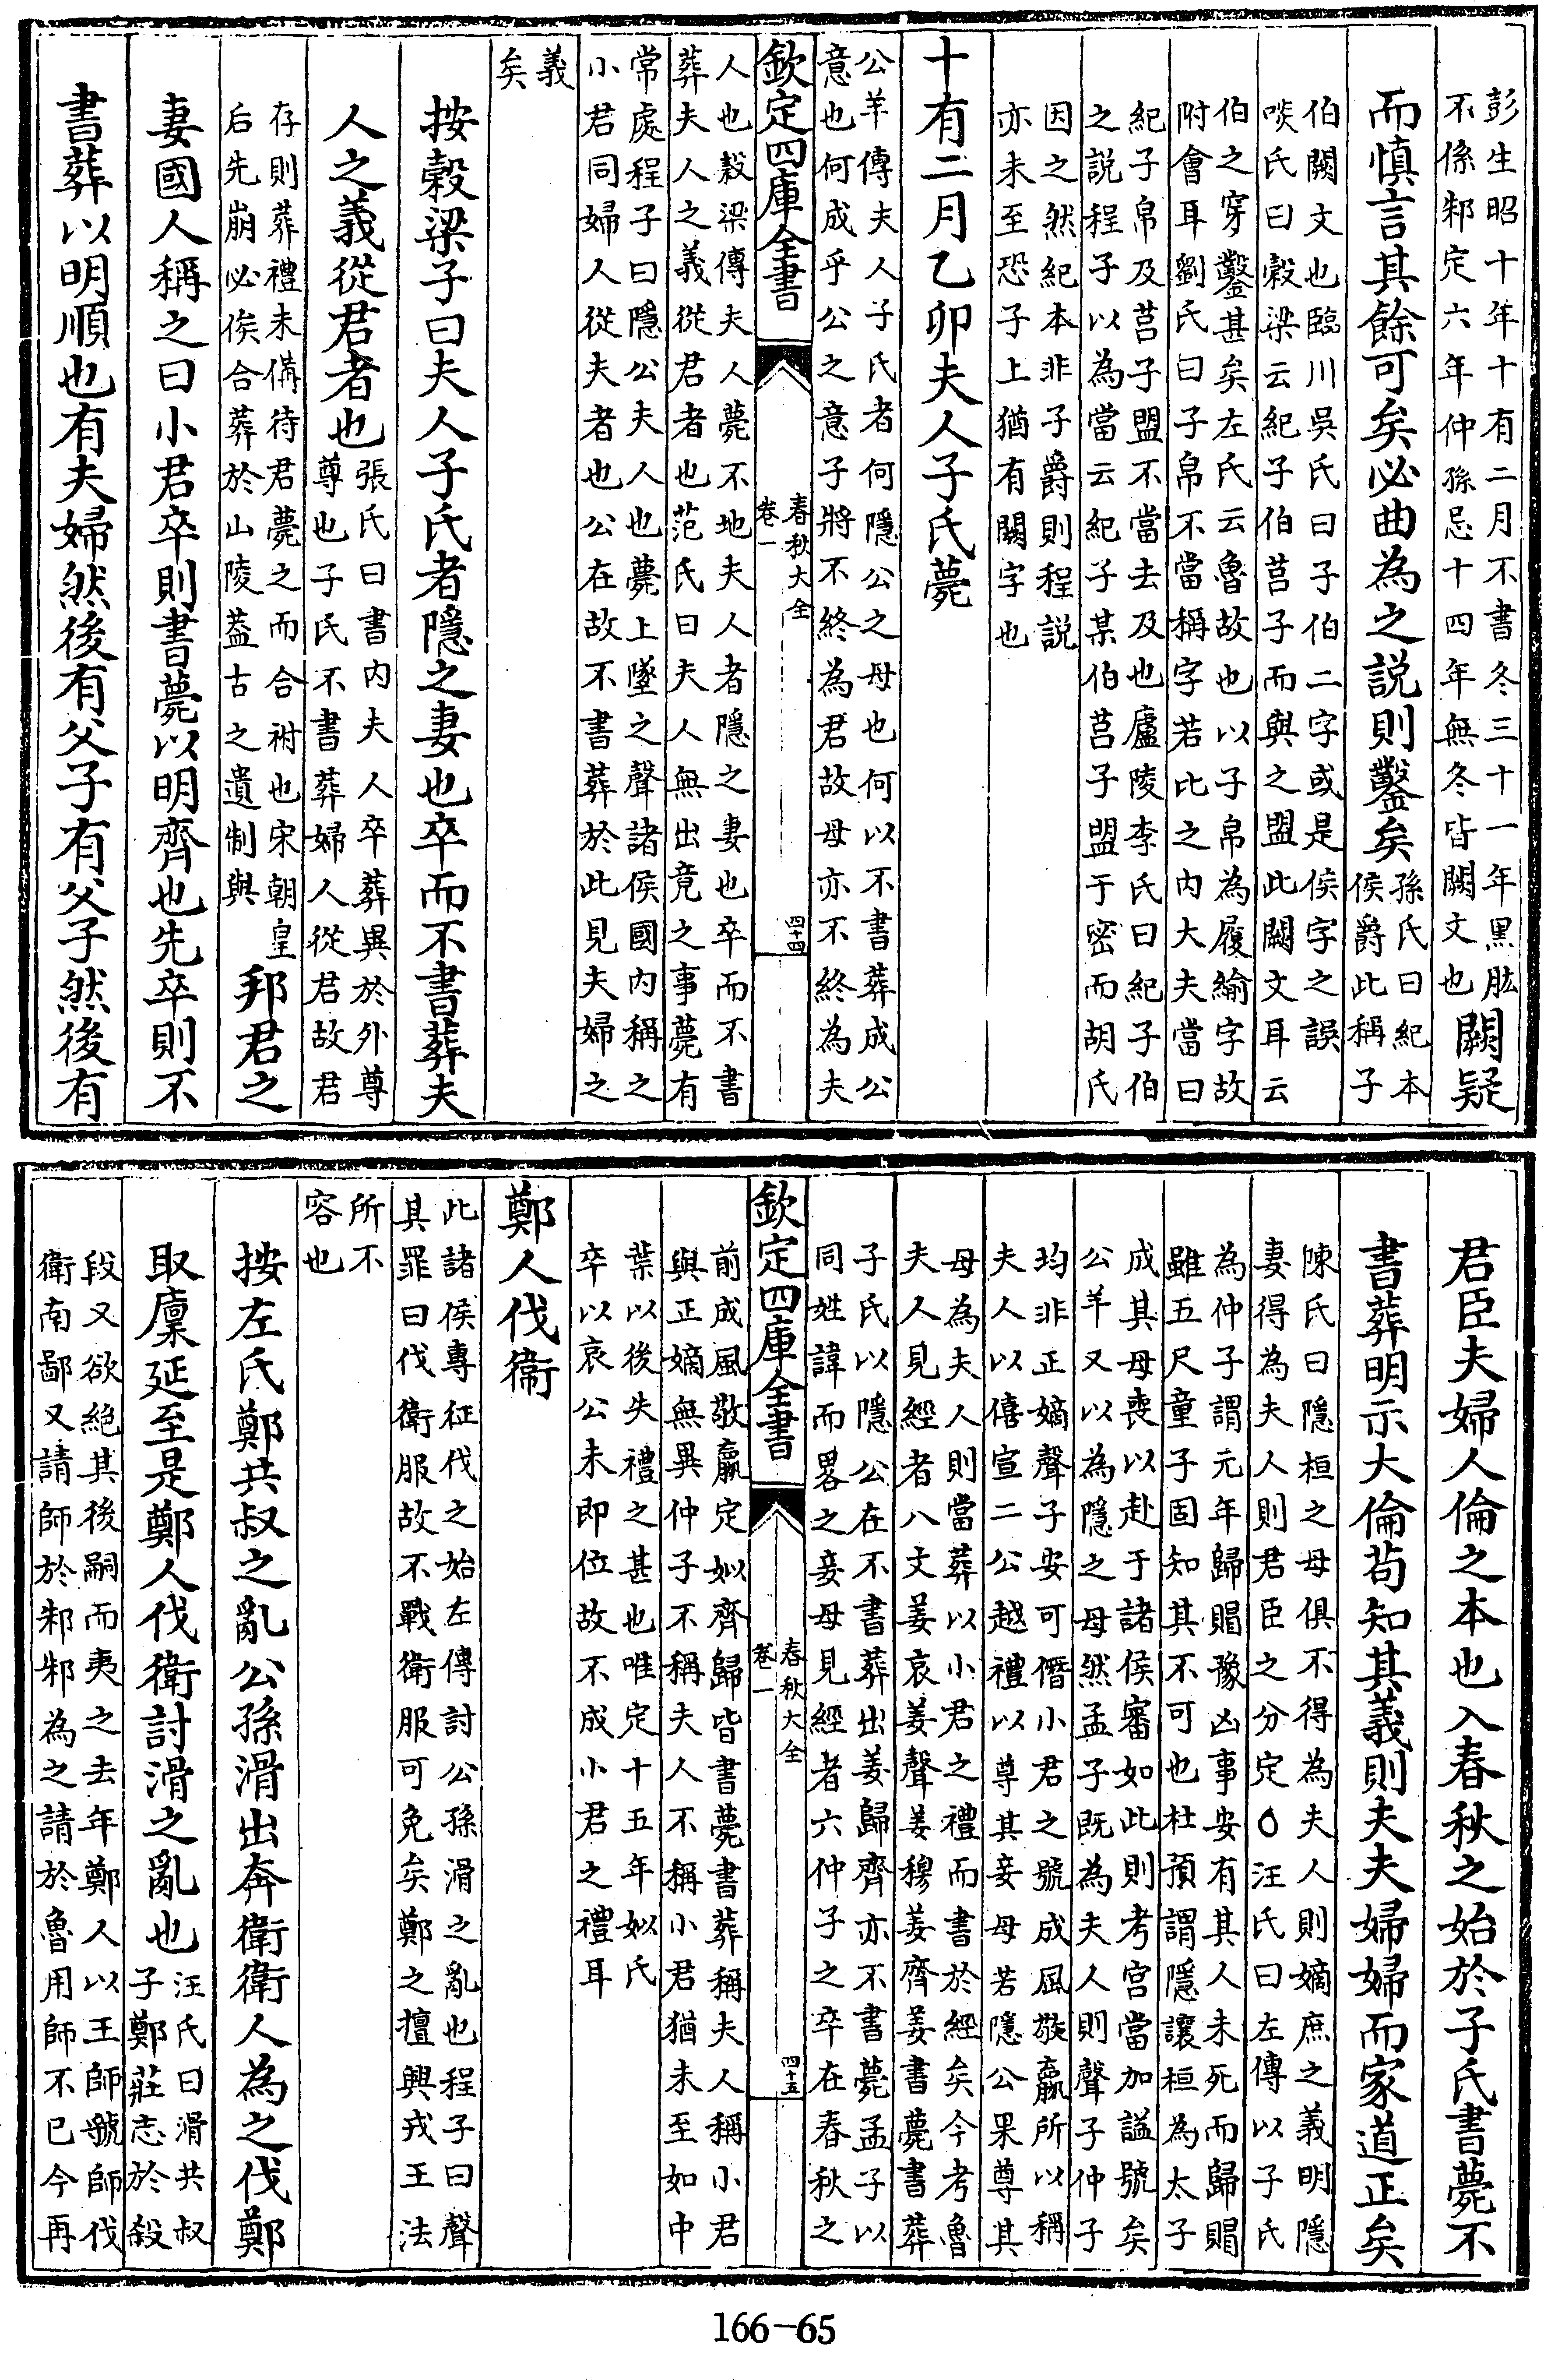 彭生昭十年十有二月不書冬三十一年黑肱
不係邾定六年仲孫忌十四年無冬皆闕文也
闕疑
而慎言其餘可矣必曲為之説則鑿矣
孫氏曰紀本
侯爵此稱子
伯闕文也臨川吳氏曰子伯二字或是侯字之誤
啖氏曰穀梁云紀子伯莒子而與之盟此闕文耳云
伯之穿鑿甚矣左氏云魯故也以子帛為履緰字故
附會耳劉氏曰子帛不當稱字若比之內大夫當曰
紀子帛及莒子盟不當去及也廬陵李氏曰紀子伯
之説程子以為當云紀子某伯莒子盟于密而胡氏
因之然紀本非子爵則程説
亦未至恐子上猶有闕字也
十有二月乙卯夫人子氏薨
公羊傳夫人子氏者何隱公之母也何以不書葬成公
意也何成乎公之意子將不終為君故母亦不終為夫
欽定四庫全書
春秋大全
卷一
四十四
人也穀梁傳夫人薨不地夫人者隱之妻也卒而不書
葬夫人之義從君者也范氏曰夫人無出竟之事薨有
常處程子曰隱公夫人也薨上墜之聲諸侯國內稱之
小君同婦人從夫者也公在故不書葬於此見夫婦之
義
矣
按穀梁子曰夫人子氏者隱之妻也卒而不書葬夫
人之義從君者也
張氏曰書內夫人卒葬異於外尊
尊也子氏不書葬婦人從君故君
存則葬禮未備待君薨之而合祔也宋朝皇
后先崩必俟合葬於山陵葢古之遺制與
邦君之
妻國人稱之曰小君卒則書薨以明齊也先卒則不
書葬以明順也有夫婦然後有父子有父子然後有
君臣夫婦人倫之本也入春秋之始於子氏書薨不
書葬明示大倫茍知其義則夫夫婦婦而家道正矣
陳氏曰隱桓之母俱不得為夫人則嫡庶之義明隱
妻得為夫人則君臣之分定○汪氏曰左傳以子氏
為仲子謂元年歸賵豫凶事安有其人未死而歸賵
雖五尺童子固知其不可也杜預謂隱讓桓為太子
成其母喪以赴于諸侯審如此則考宮當加諡號矣
公羊又以為隱之母然孟子既為夫人則聲子仲子
均非正嫡聲子安可僭小君之號成風敬嬴所以稱
夫人以僖宣二公越禮以尊其妾母若隱公果尊其
母為夫人則當葬以小君之禮而書於經矣今考魯
夫人見經者八文姜哀姜聲姜穆姜齊姜書薨書葬
子氏以隱公在不書葬出姜歸齊亦不書薨孟子以
同姓諱而畧之妾母見經者六仲子之卒在春秋之
欽定四庫全書
春秋大全
卷一
四十五
前成風敬嬴定姒齊歸皆書薨書葬稱夫人稱小君
與正嫡無異仲子不稱夫人不稱小君猶未至如中
葉以後失禮之甚也唯定十五年姒氏
卒以哀公未即位故不成小君之禮耳
鄭人伐衞
此諸侯專征伐之始左傳討公孫滑之亂也程子曰聲
其罪曰伐衛服故不戰衛服可免矣鄭之擅興戎王法
所不
容也
按左氏鄭共叔之亂公孫滑出奔衛衛人為之伐鄭
取廩延至是鄭人伐衛討滑之亂也
汪氏曰滑共叔
子鄭莊志於殺
段又欲絶其後嗣而夷之去年鄭人以王師虢師伐
衛南鄙又請師於邾邾為之請於魯用師不已今再
166-65